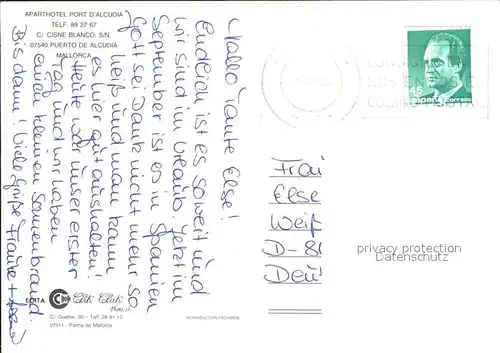 APARTHOTEL PORT D'ALCUDIA
TELF. 89 27 67
C/ CISNE BLANCO, S/N.
07540 PUERTO DE ALCUDIA
MALLORCA
Hallo Tante Else!
Endlich ist es soweit und
wir sind im Urlaub. Jetzt im
September ist es in Spanien
Gott sei Dank nicht mehr so
heiß und man kann
es hier gut aushalten.
Heute war unser erster
Tag und wir haben
einen kleinen Sonnenbrand.
Bis dann! Viele Grüße Frauke +
EDITA
Clik Clak
C/ Goethe, 30 - Telf. 28 91 12
07011 - Palma de Mallorca
REPRODUCCION PROHIBIDA
45
españa
correos
CODIGO POSTAL
Frau
Else
Weiß
D-8
Deu
privacy protection
Datenschutz